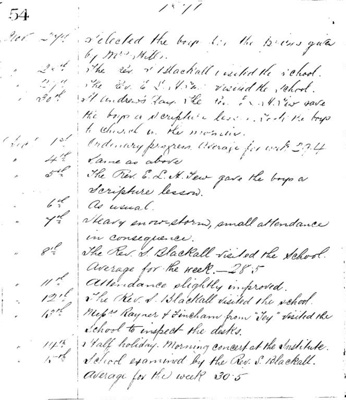 54
1871
Nov 27th Selected the boys for the prizes given
by Mrs Hills.
" 28th The Rev. S Blackall visited the school.
" 29th The Rev. E. L. H. Tew visited the school.
" 30th St Andrew's Day. The Rev. E. L. H. Tew gave
the boys a scripture lesson & took the boys
to church in the morning.
Dec 1st Ordinary progress. Average for week 29.4
" 4th Same as above
" 5th The Rev. E. L. H. Tew gave the boys a
scripture lesson.
" 6th As usual.
" 7th Heavy snowstorm, small attendance
in consequence.
" 8th The Rev. S Blackall visited the School.
Average for the week — 28.5
" 11th Attendance slightly improved.
" 12th The Rev. S Blackall visited the school.
" 13th Messrs Rayner & Fincham from "Ivy" visited the
School to inspect the desks.
" 14th Half holiday. Morning concert at the Institute.
" 15th School examined by the Rev. S. Blackall.
Average for the week 30.5